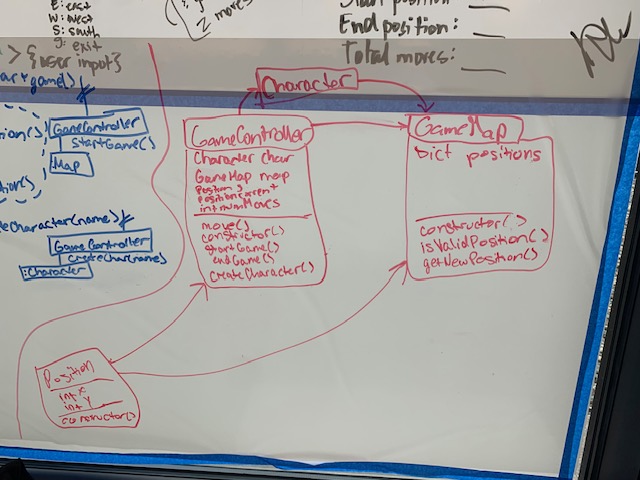 E: east
W: west
S: south
q: exit
> {user input}
2 moves
End position: __
Total moves: __
game()
GameController
startGame()
Map
Character(name)
GameController
createChar(name)
:Character
Character
GameController
Character char
GameMap map
int numMoves
move()
constructor()
startGame()
endGame()
createCharacter()
GameMap
Dict positions
constructor()
isValidPosition()
getNewPosition()
Position
int x
int y
constructor()